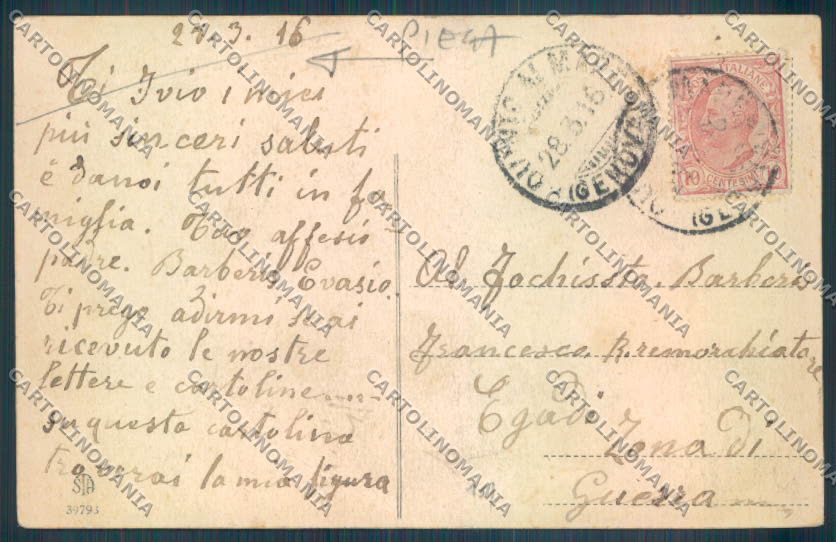 27.3.16
PIEGA
Ti Ivio i miei
più sinceri saluti
e danoi tutti in fa
miglia. Tuo affesio
padre. Barberis Evasio.
Ti prego adirmi se ai
ricevuto le nostre
lettere e cartoline
Su questa cartolina
trovarai la mia figura
STA
39793
28.3.16
(GENOVA)
POSTE ITALIANE
10 CENTESIMI
(GE
Al Fochissta Barberis
Francesco R. remorchiatore
Egadi
Zona Di
Guerra
CARTOLINOMANIA